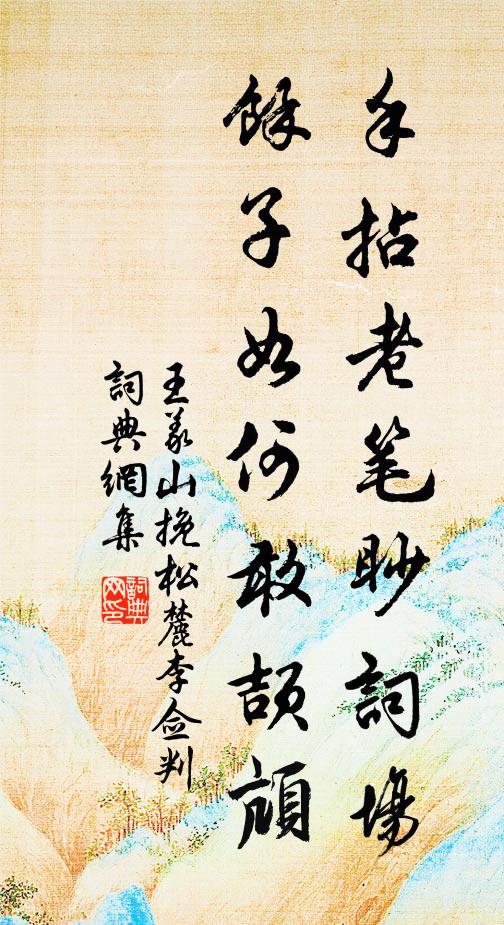 手拈老笔眇詞場
餘子如何敢頡頏
王義山挽松麓李僉判
詞典網集
詞典網印